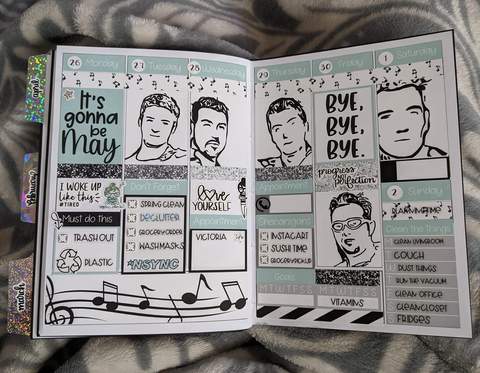 26 Monday
27 Tuesday
28 Wednesday
29 Thursday
30 Friday
1 Saturday
It's
gonna
be
May
BYE,
BYE,
BYE.
I WOKE UP
like this
#TIRED
Must do This
TRASH OUT
PLASTIC
Don't Forget
SPRING CLEAN
DECLUTTER
GROCERY ORDER
WASH MASKS
*NSYNC
love
YOURSELF
Appointment
VICTORIA
Appointment
Shenanigans
INSTACART
SUSHI TIME
GROCERY PICKUP
Goals
MTWTFSS
MTWTFSS
VITAMINS
progress
perfection
2 Sunday
PLANNING TIME
Clean the Things
CLEAN LIVINGROOM
COUCH
DUST THINGS
RUN THE VACUUM
CLEAN OFFICE
CLEAN CLOSET
FRIDGES
april